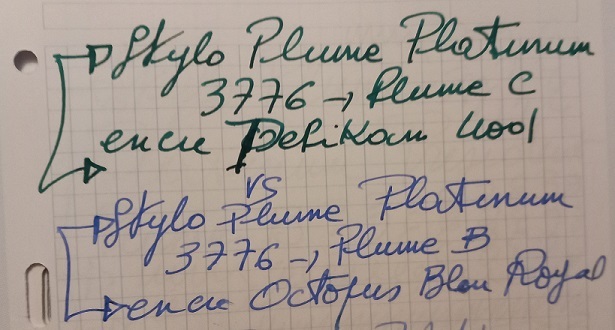 Stylo Plume Platinum
3776 → Plume C
encre Pelikan 4001
vs
Stylo Plume Platinum
3776 → Plume B
encre Octopus Bleu Royal